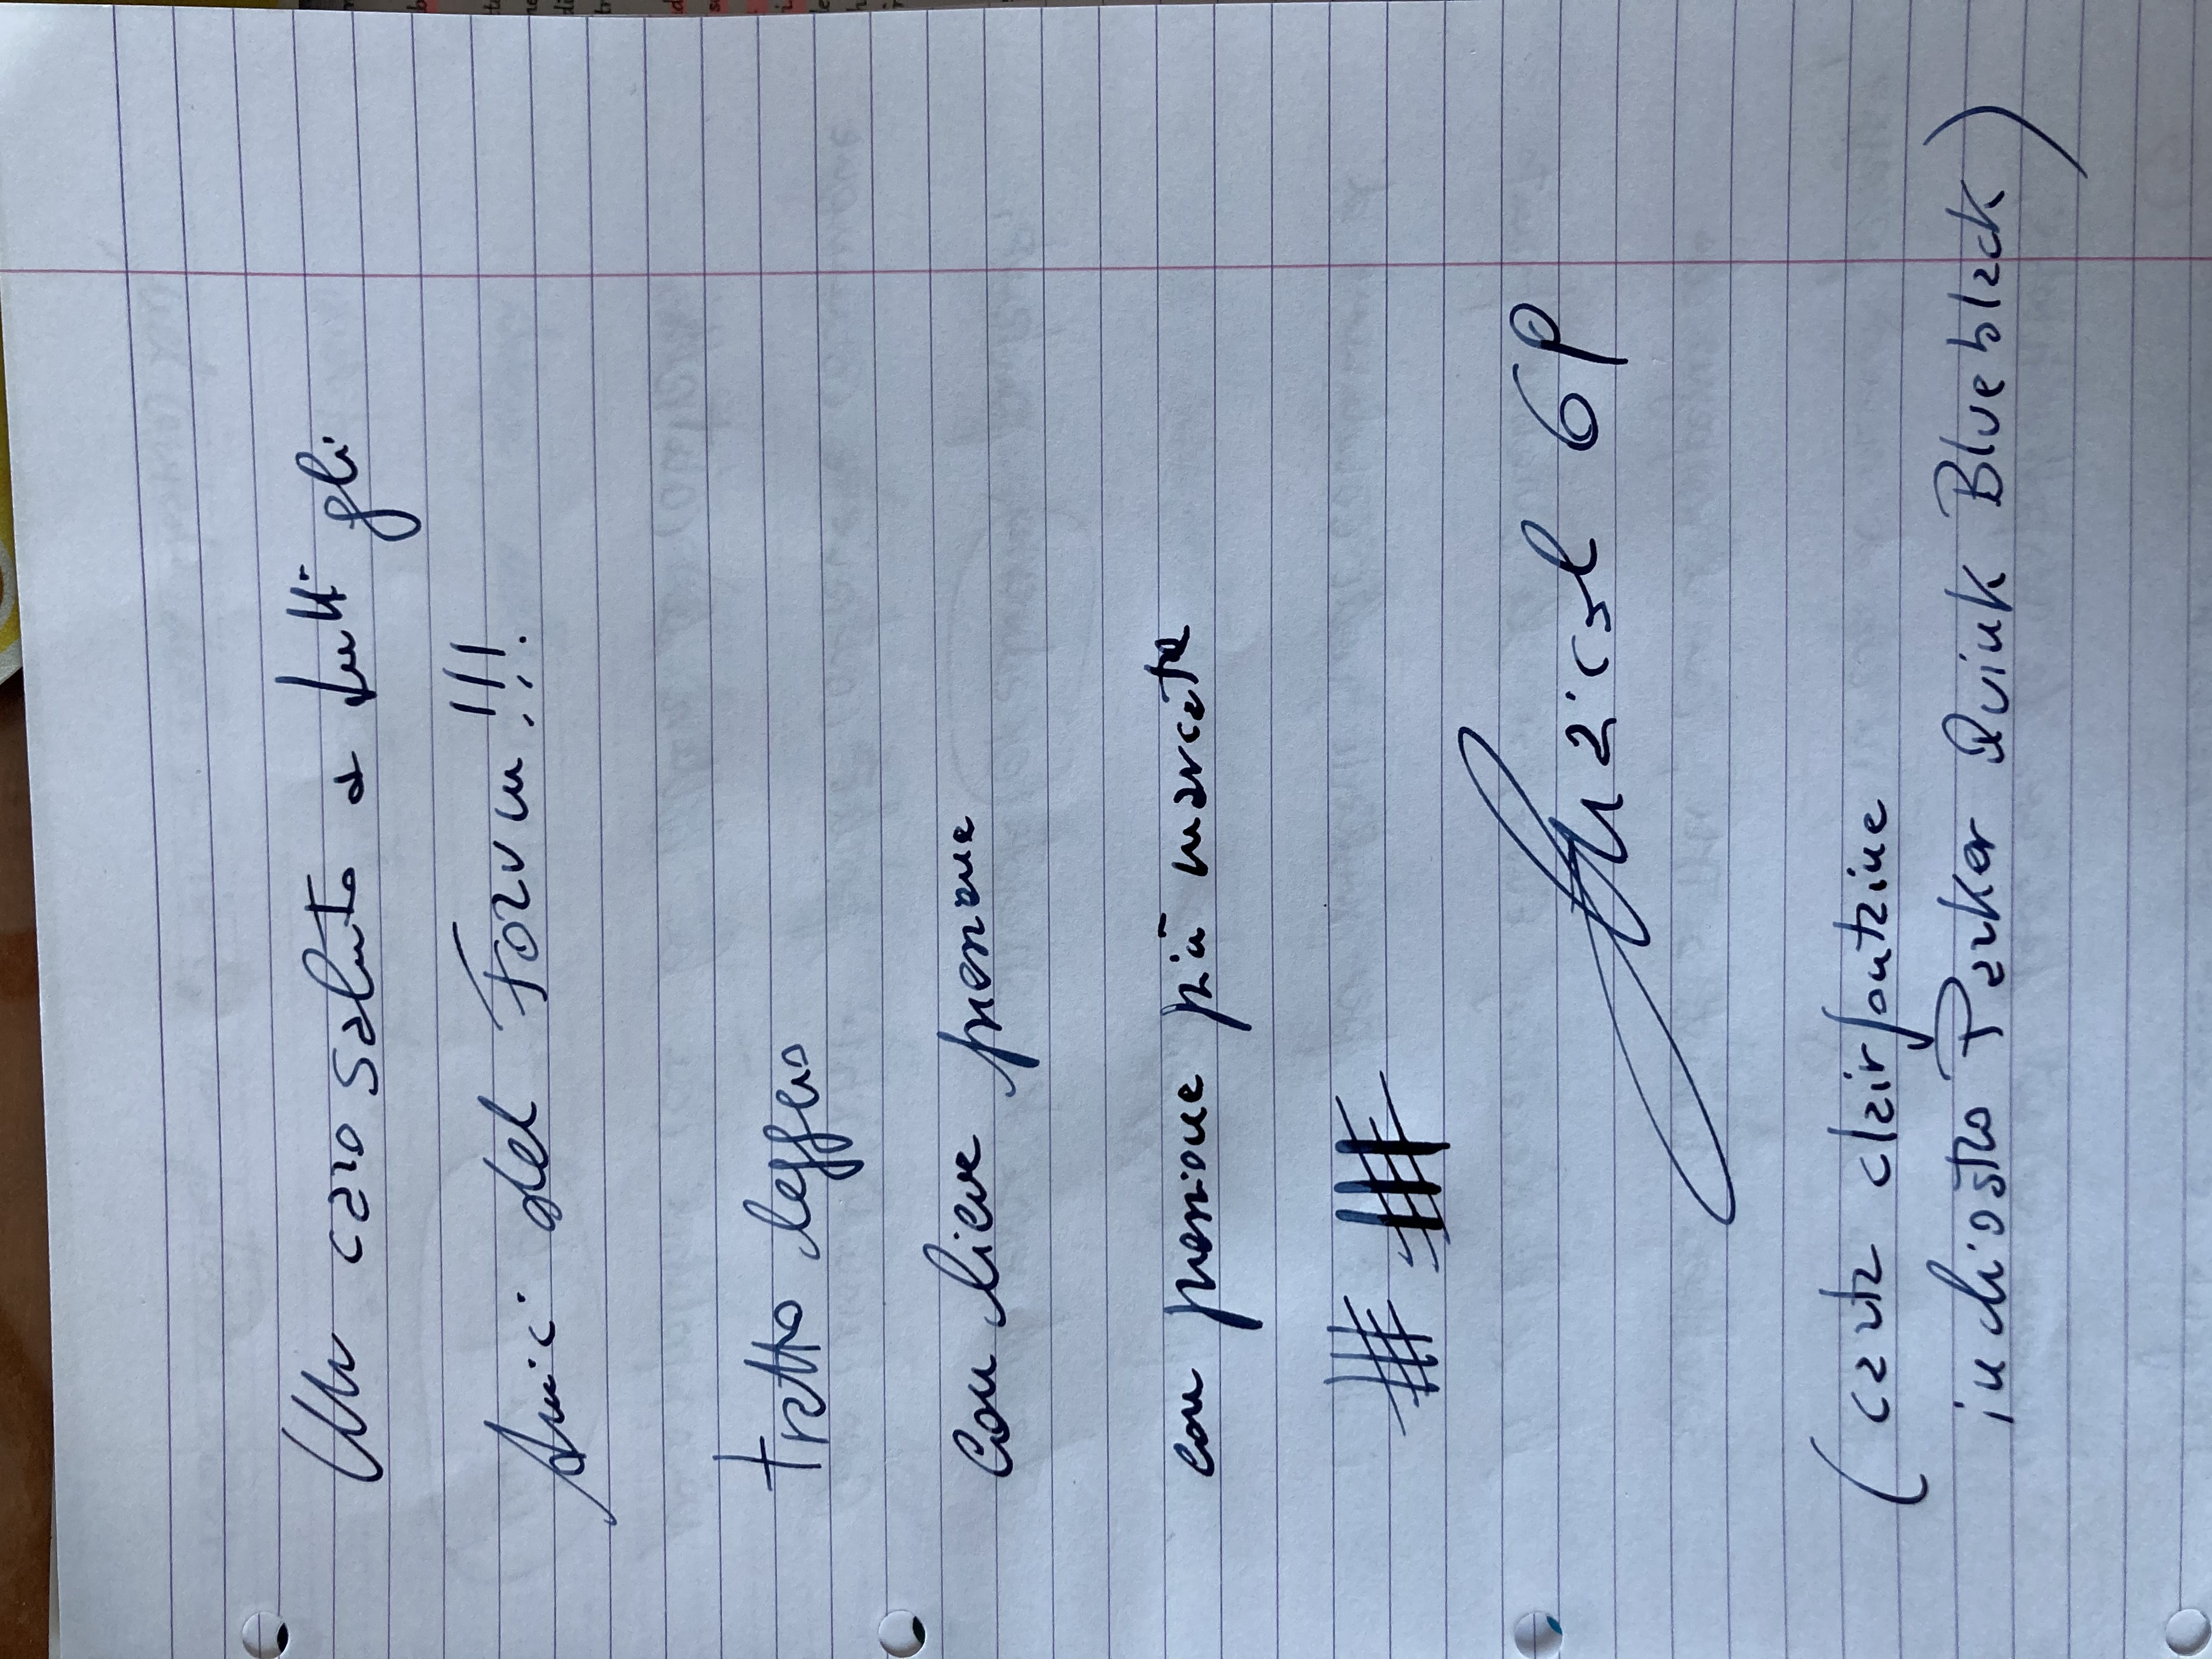 Un caro saluto a tutti gli
Amici del Forum!!!
tratto leggero
Con lieve pressione
con pressione più marcata
6P
(carta clairfontaine
inchiostro Parker Quink Blue black)